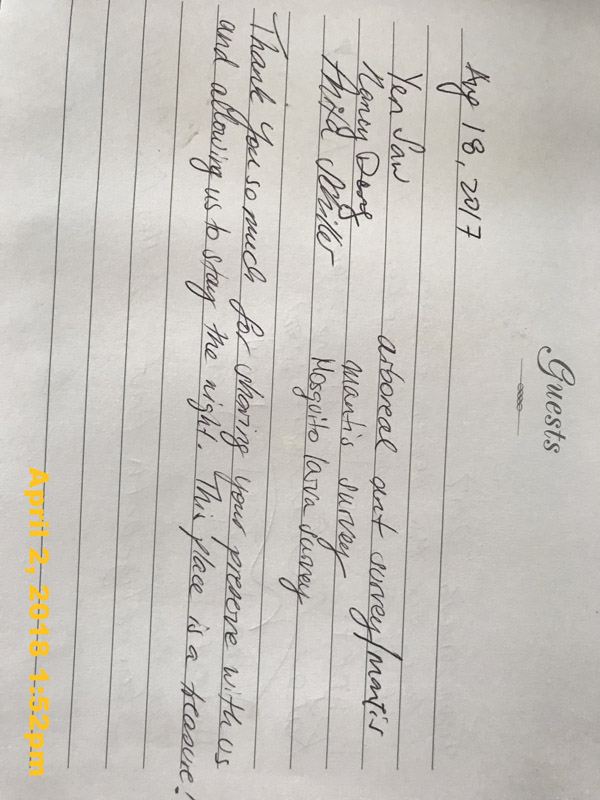 Guests
Aug 18, 2017
Yen Saw arboreal ant survey/mantis
Nancy Dong mantis survey
Mosquito larva survey
Thank you so much for sharing your preserve with us
and allowing us to stay the night. This place is a treasure!
April 2, 2018 1:52pm